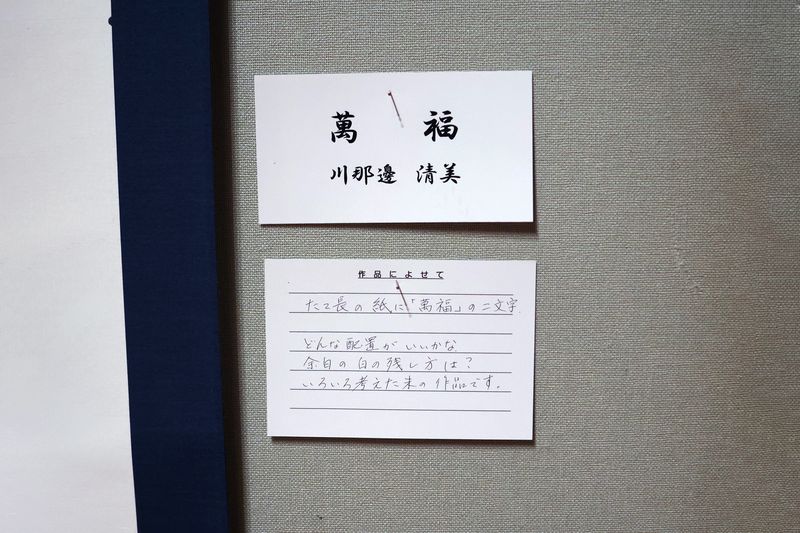 萬 福
川那邊 清美
作品によせて
たて長の紙に「萬福」の二文字
どんな配置がいいかな
余白の白の残し方は?
いろいろ考えた末の作品です。